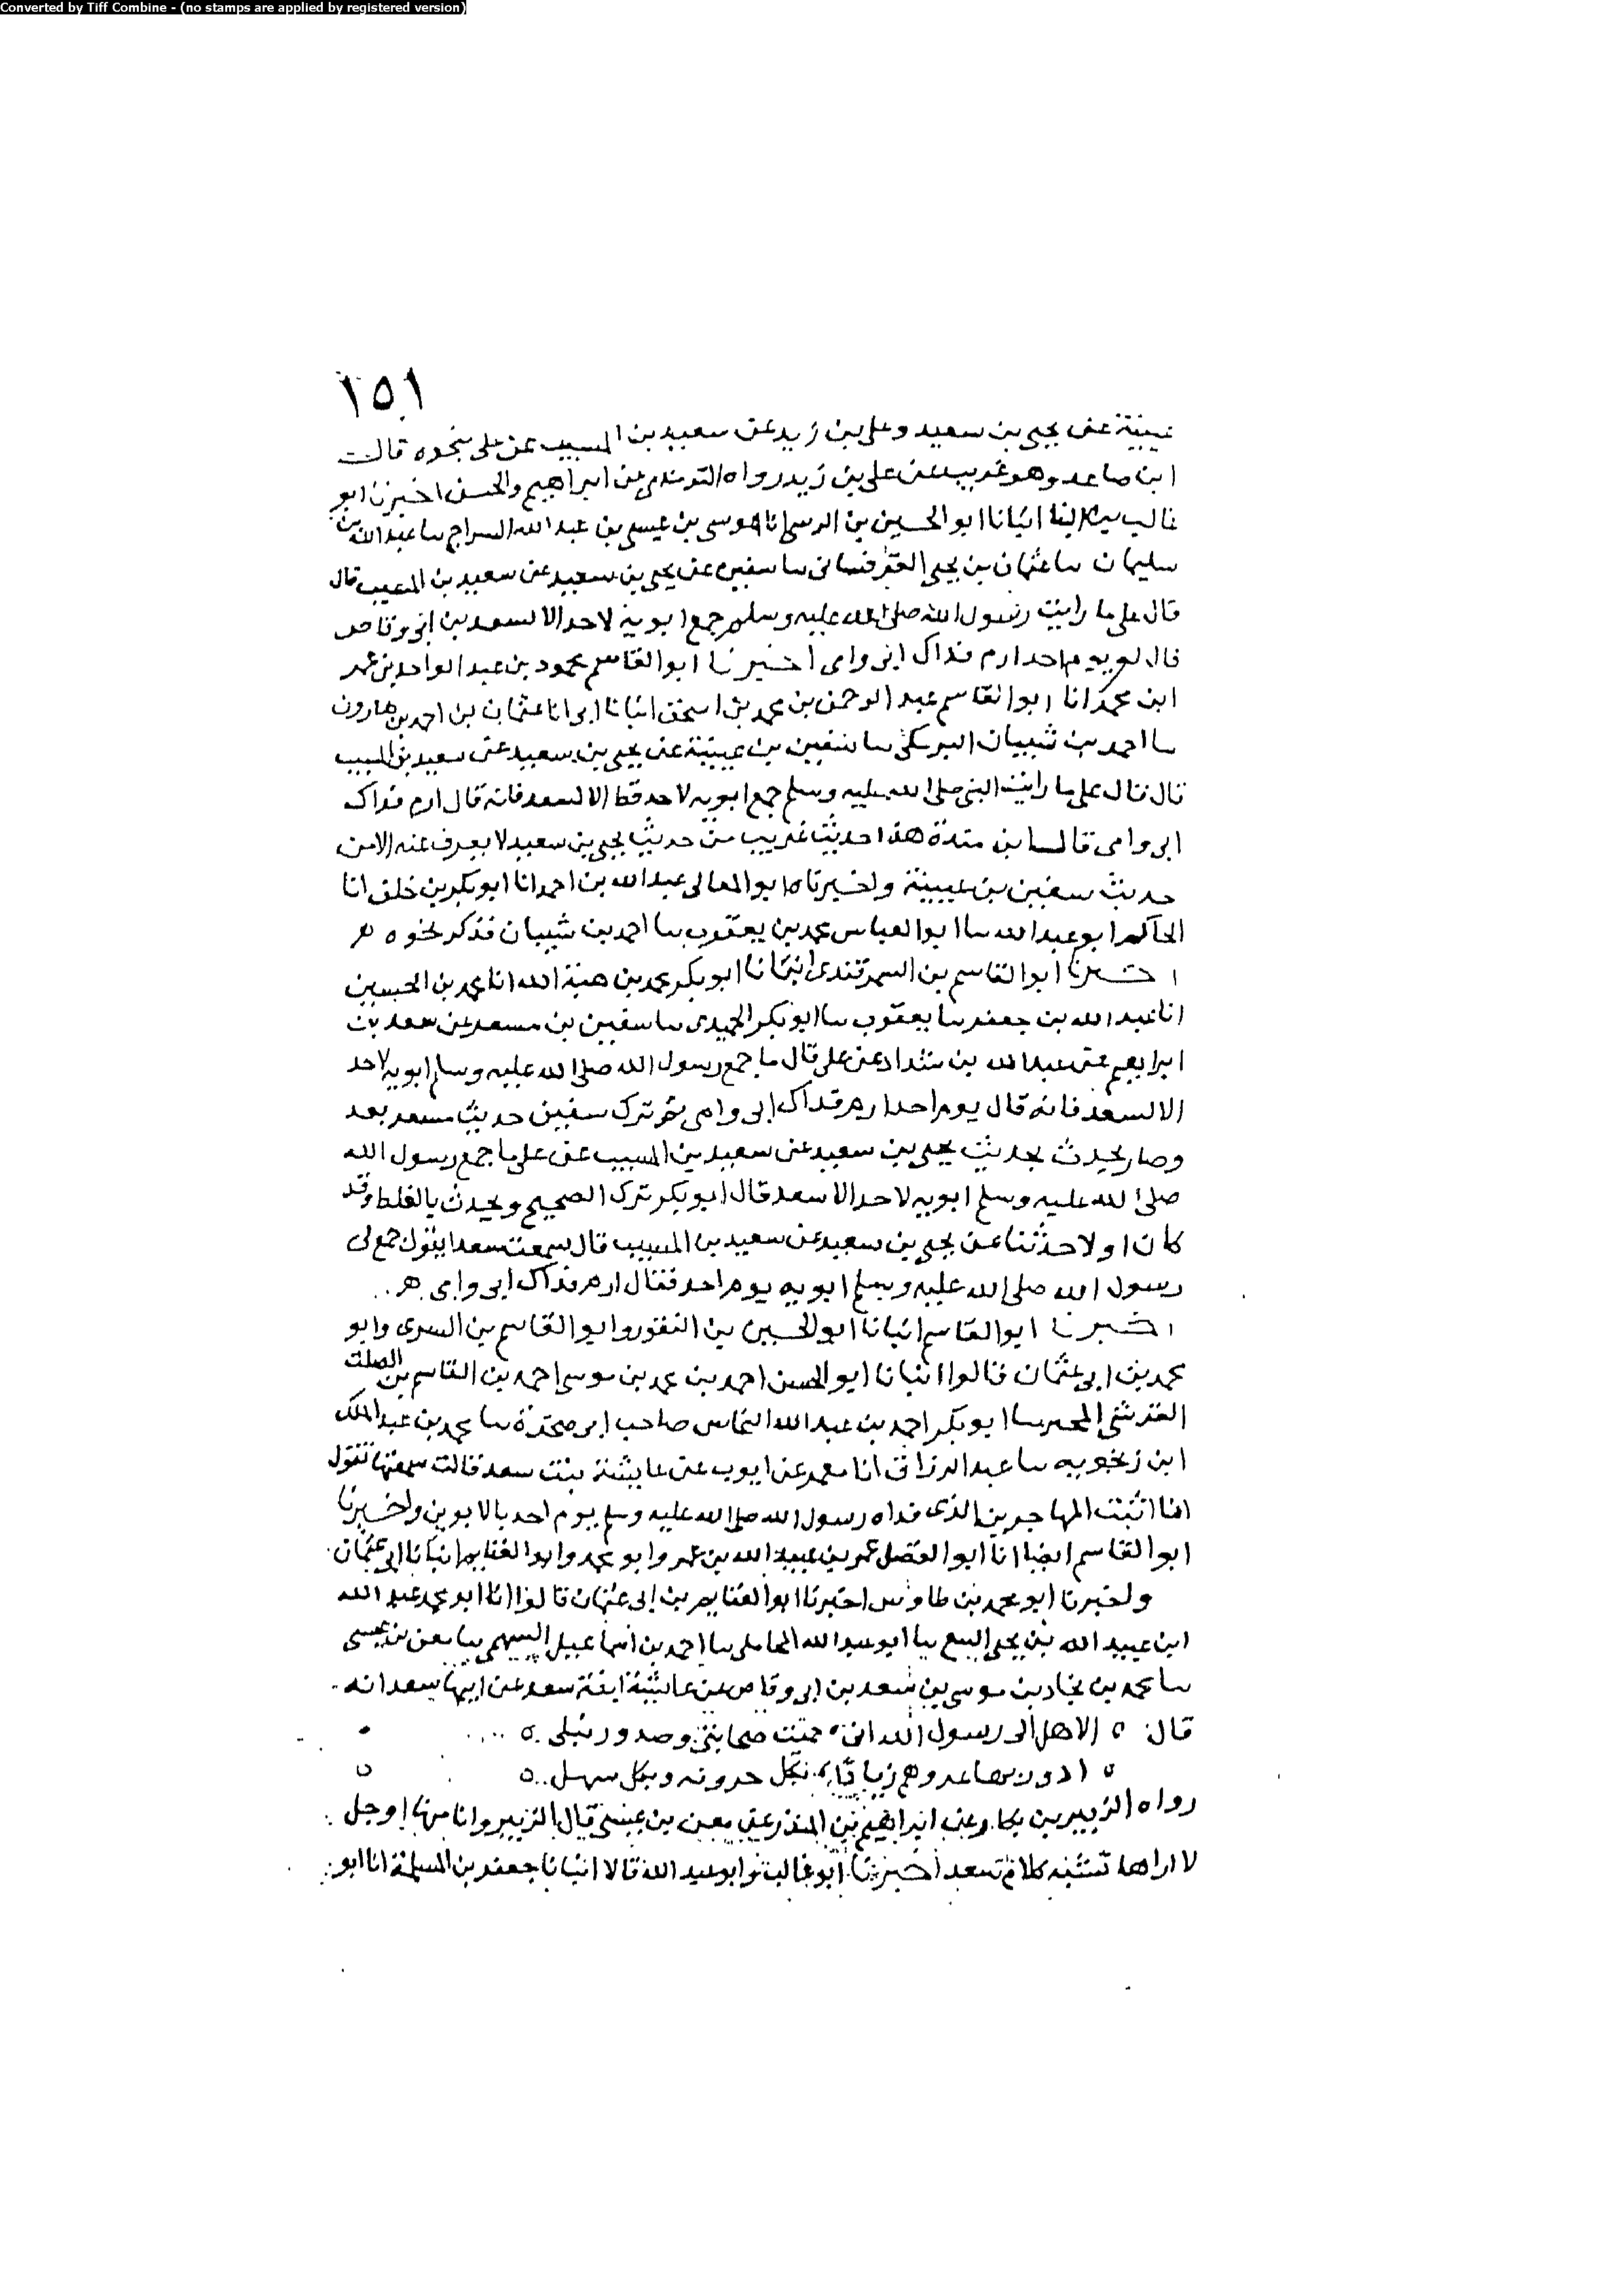 Converted by Tiff Combine - (no stamps are applied by registered version)
١٥١
عيينة عن يحيى بن سعيد وعلى بن زيد عن سعيد بن المسيب عن على بنحوه قال
ابن صاعد وهو غريب عن على بن زيد رواه الترمذى عن ابراهيم والحسن اخبرنا ابو
غالب بن البنا انبانا ابو الحسين بن انا موسى بن عيسى بن عبد الله السراج سا عبد الله بن
سليمان سا عثمان بن يحيى القرقسانى سا سفين عن يحيى بن سعيد عن سعيد بن المسيب قال
قال على ما رايت رسول الله صلى الله عليه وسلم جمع ابويه لاحد الا لسعد بن ابى وقاص
قال له يوم احد ارم فداك ابى وامى اخبرنا ابو القاسم محمود بن عبد الواحد بن عمر
ابن محمد انا ابو القاسم عبد الرحمن بن محمد بن اسحق انبانا ابى انا عثمان بن احمد بن هارون
سا احمد بن شيبان البرمكى سا سفين بن عيينة عن يحيى بن سعيد عن سعيد بن المسيب
قال قال على ما رايت النبى صلى الله عليه وسلم جمع ابويه لاحد قط الا لسعد فانه قال ارم فداك
ابى وامى قال ابن مندة هذا حديث غريب من حديث يحيى بن سعيد لا يعرف عنه الا من
حديث سفين بن عيينة واخبرناه ابو المعالى عبد الله بن احمد انا ابو بكر بن خلف انا
الحاكم ابو عبد الله سا ابو العباس محمد بن يعقوب سا احمد بن شيبان فذكر نحوه ه
اخبرنا ابو القاسم بن السمرقندى انبانا ابو بكر محمد بن هبة الله انا محمد بن الحسين
انا عبد الله بن جعفر سا يعقوب سا ابو بكر الحميدى سا سفين بن مسعر عن سعد بن
ابراهيم عن عبد الله بن شداد عن على قال ما جمع رسول الله صلى الله عليه وسلم ابويه لاحد
الا لسعد فانه قال يوم احد ارم فداك ابى وامى ثم ترك سفين حديث مسعر بعد
وصار يحدث بحديث يحيى بن سعيد عن سعيد بن المسيب عن على ما جمع رسول الله
صلى الله عليه وسلم ابويه لاحد الا سعد قال ابو بكر ترك الصحيح ويحدث بالغلط وقد
كان اولا حدثنا عن يحيى بن سعيد عن سعيد بن المسيب قال سمعت سعدا يقول جمع لى
رسول الله صلى الله عليه وسلم ابويه يوم احد فقال ارم فداك ابى وامى ه
اخبرنا ابو القاسم انبانا ابو الحسين بن النقور وابو القاسم بن البسرى وابو
محمد بن ابى عثمان قالوا انبانا ابو الحسن احمد بن محمد بن موسى احمد بن القاسم بن الصلت
القرشى المجبر سا ابو بكر احمد بن عبد الله النحاس صاحب ابى صخرة سا محمد بن عبد الملك
ابن زنجويه سا عبد الرزاق انا معمر عن ايوب عن عايشة بنت سعد قالت سمعتها تقول
انا ابنة المهاجرين الذى فداه رسول الله صلى الله عليه وسلم يوم احد بالابوين واخبرنا
ابو القاسم ايضا انا ابو الفضل عمر بن عبيد الله بن عمر وابو محمد وابو الغنايم انبانا ابى عثمان
واخبرنا ابو محمد بن طاوس اخبرنا ابو الغنايم بن ابى عثمان قالوا انا ابو محمد عبد الله
ابن عبيد الله بن يحيى البيع سا ابو عبد الله المحاملى سا احمد بن اسماعيل السهمى سا معن بن عيسى
سا محمد بن بجاد بن موسى بن سعد بن ابى وقاص عن عايشة ابنة سعد عن ابيها سعد انه
قال ه الا هل اتى رسول الله انى ه حميت صحابتى بصدور نبلى ه
ه بكل حزونه وبكل سهل ه
رواه الزبير بن بكار عن ابراهيم بن المنذر عن معن بن عيسى قال الزبير وانا منها اوجل
لا اراها تشبه كلام سعد اخبرنا ابو غالب وابو عبد الله قالا انبانا جعفر بن المسلمة انا ابو